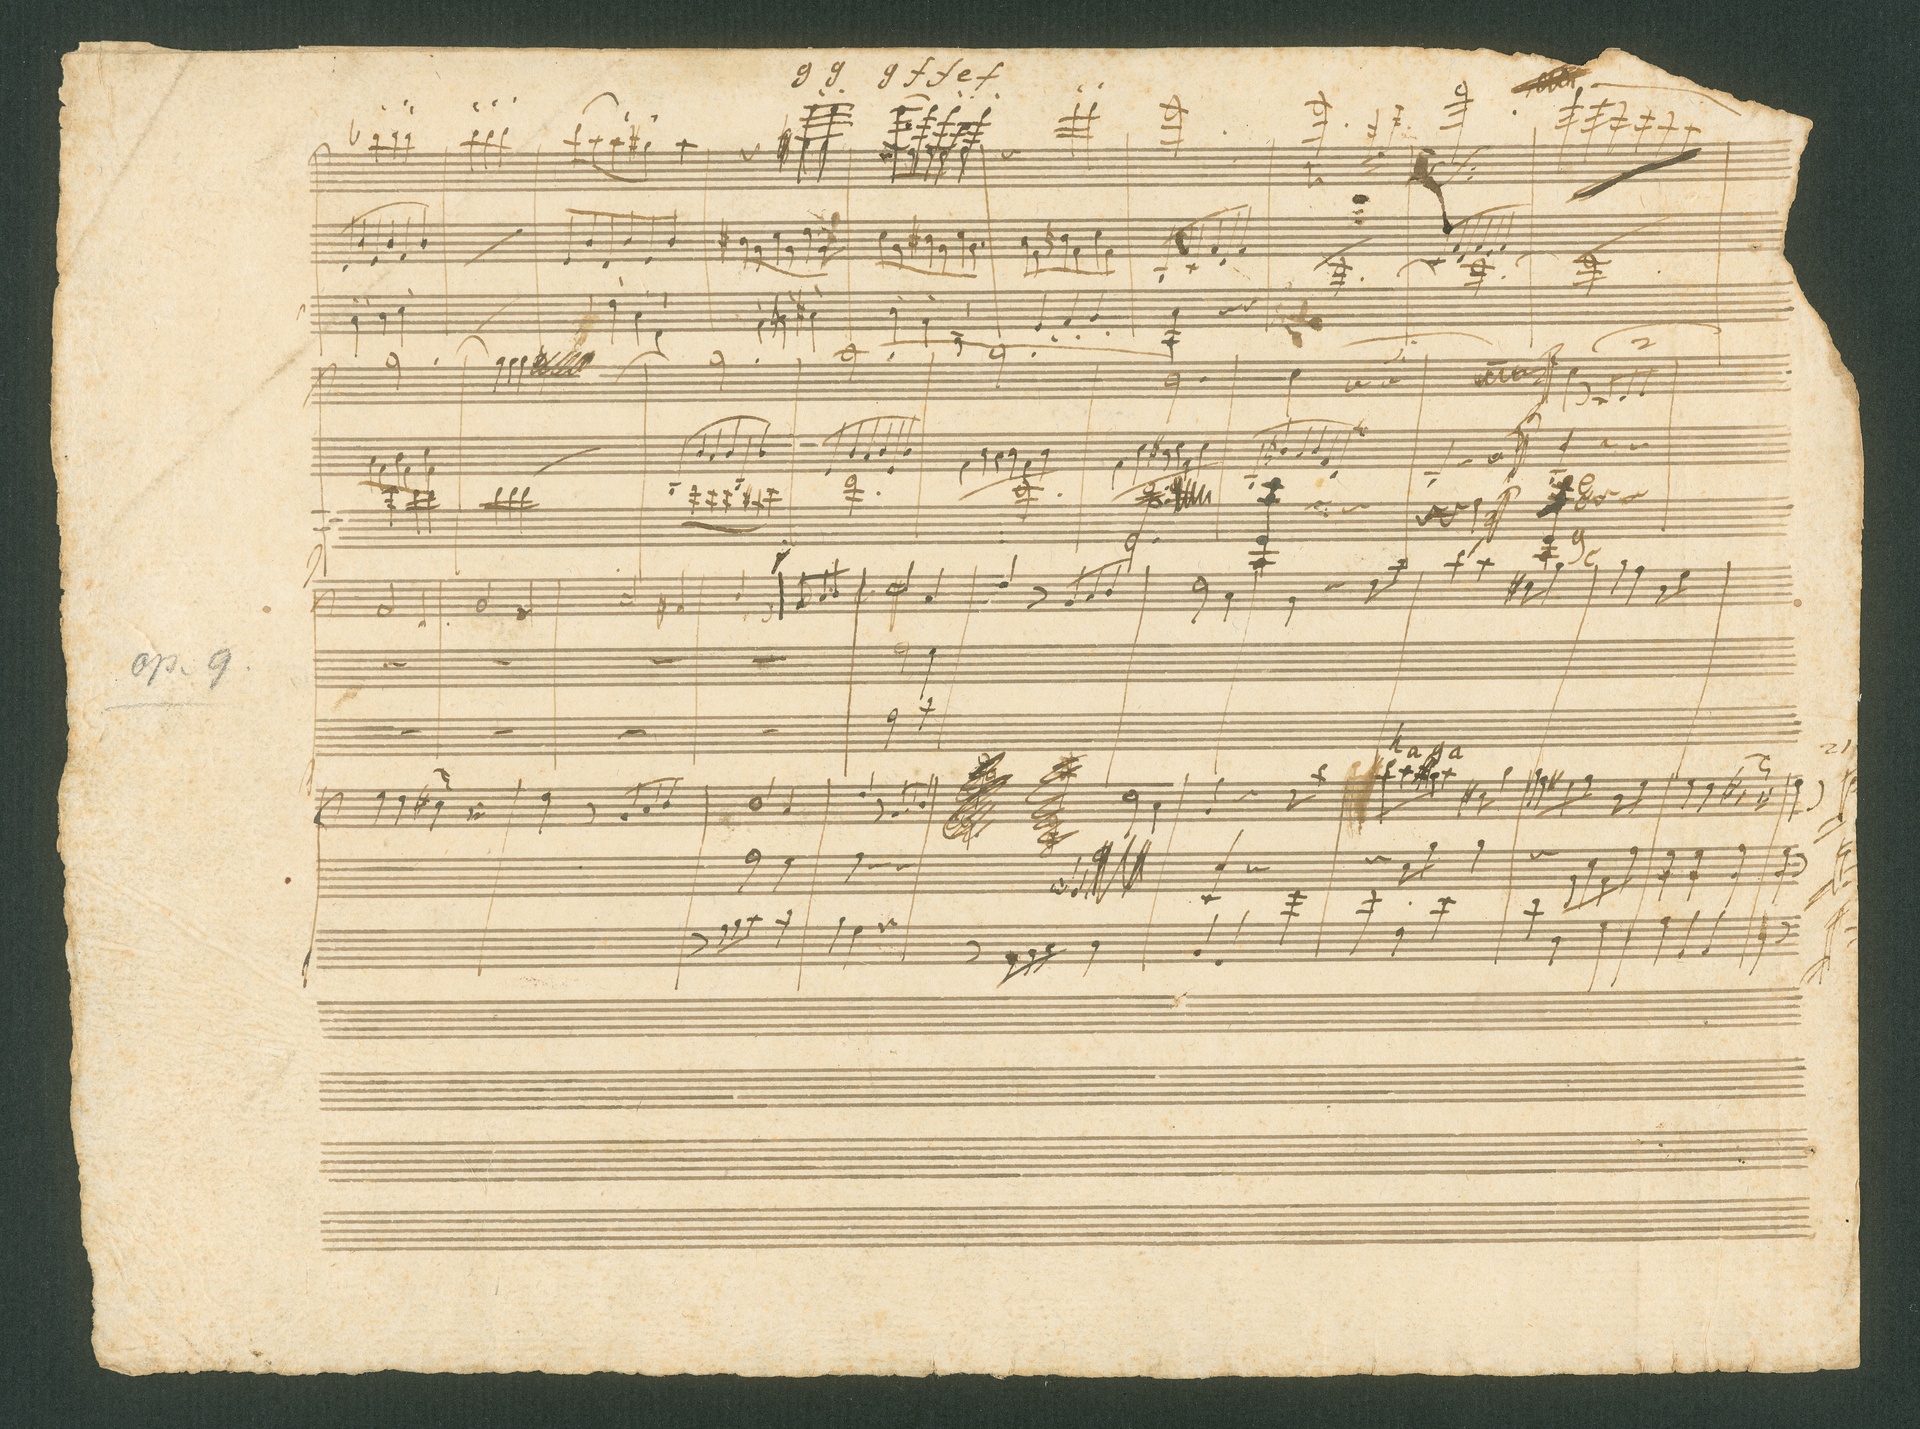 g g g f f e f
e
g
c
op. 9.
h a g a